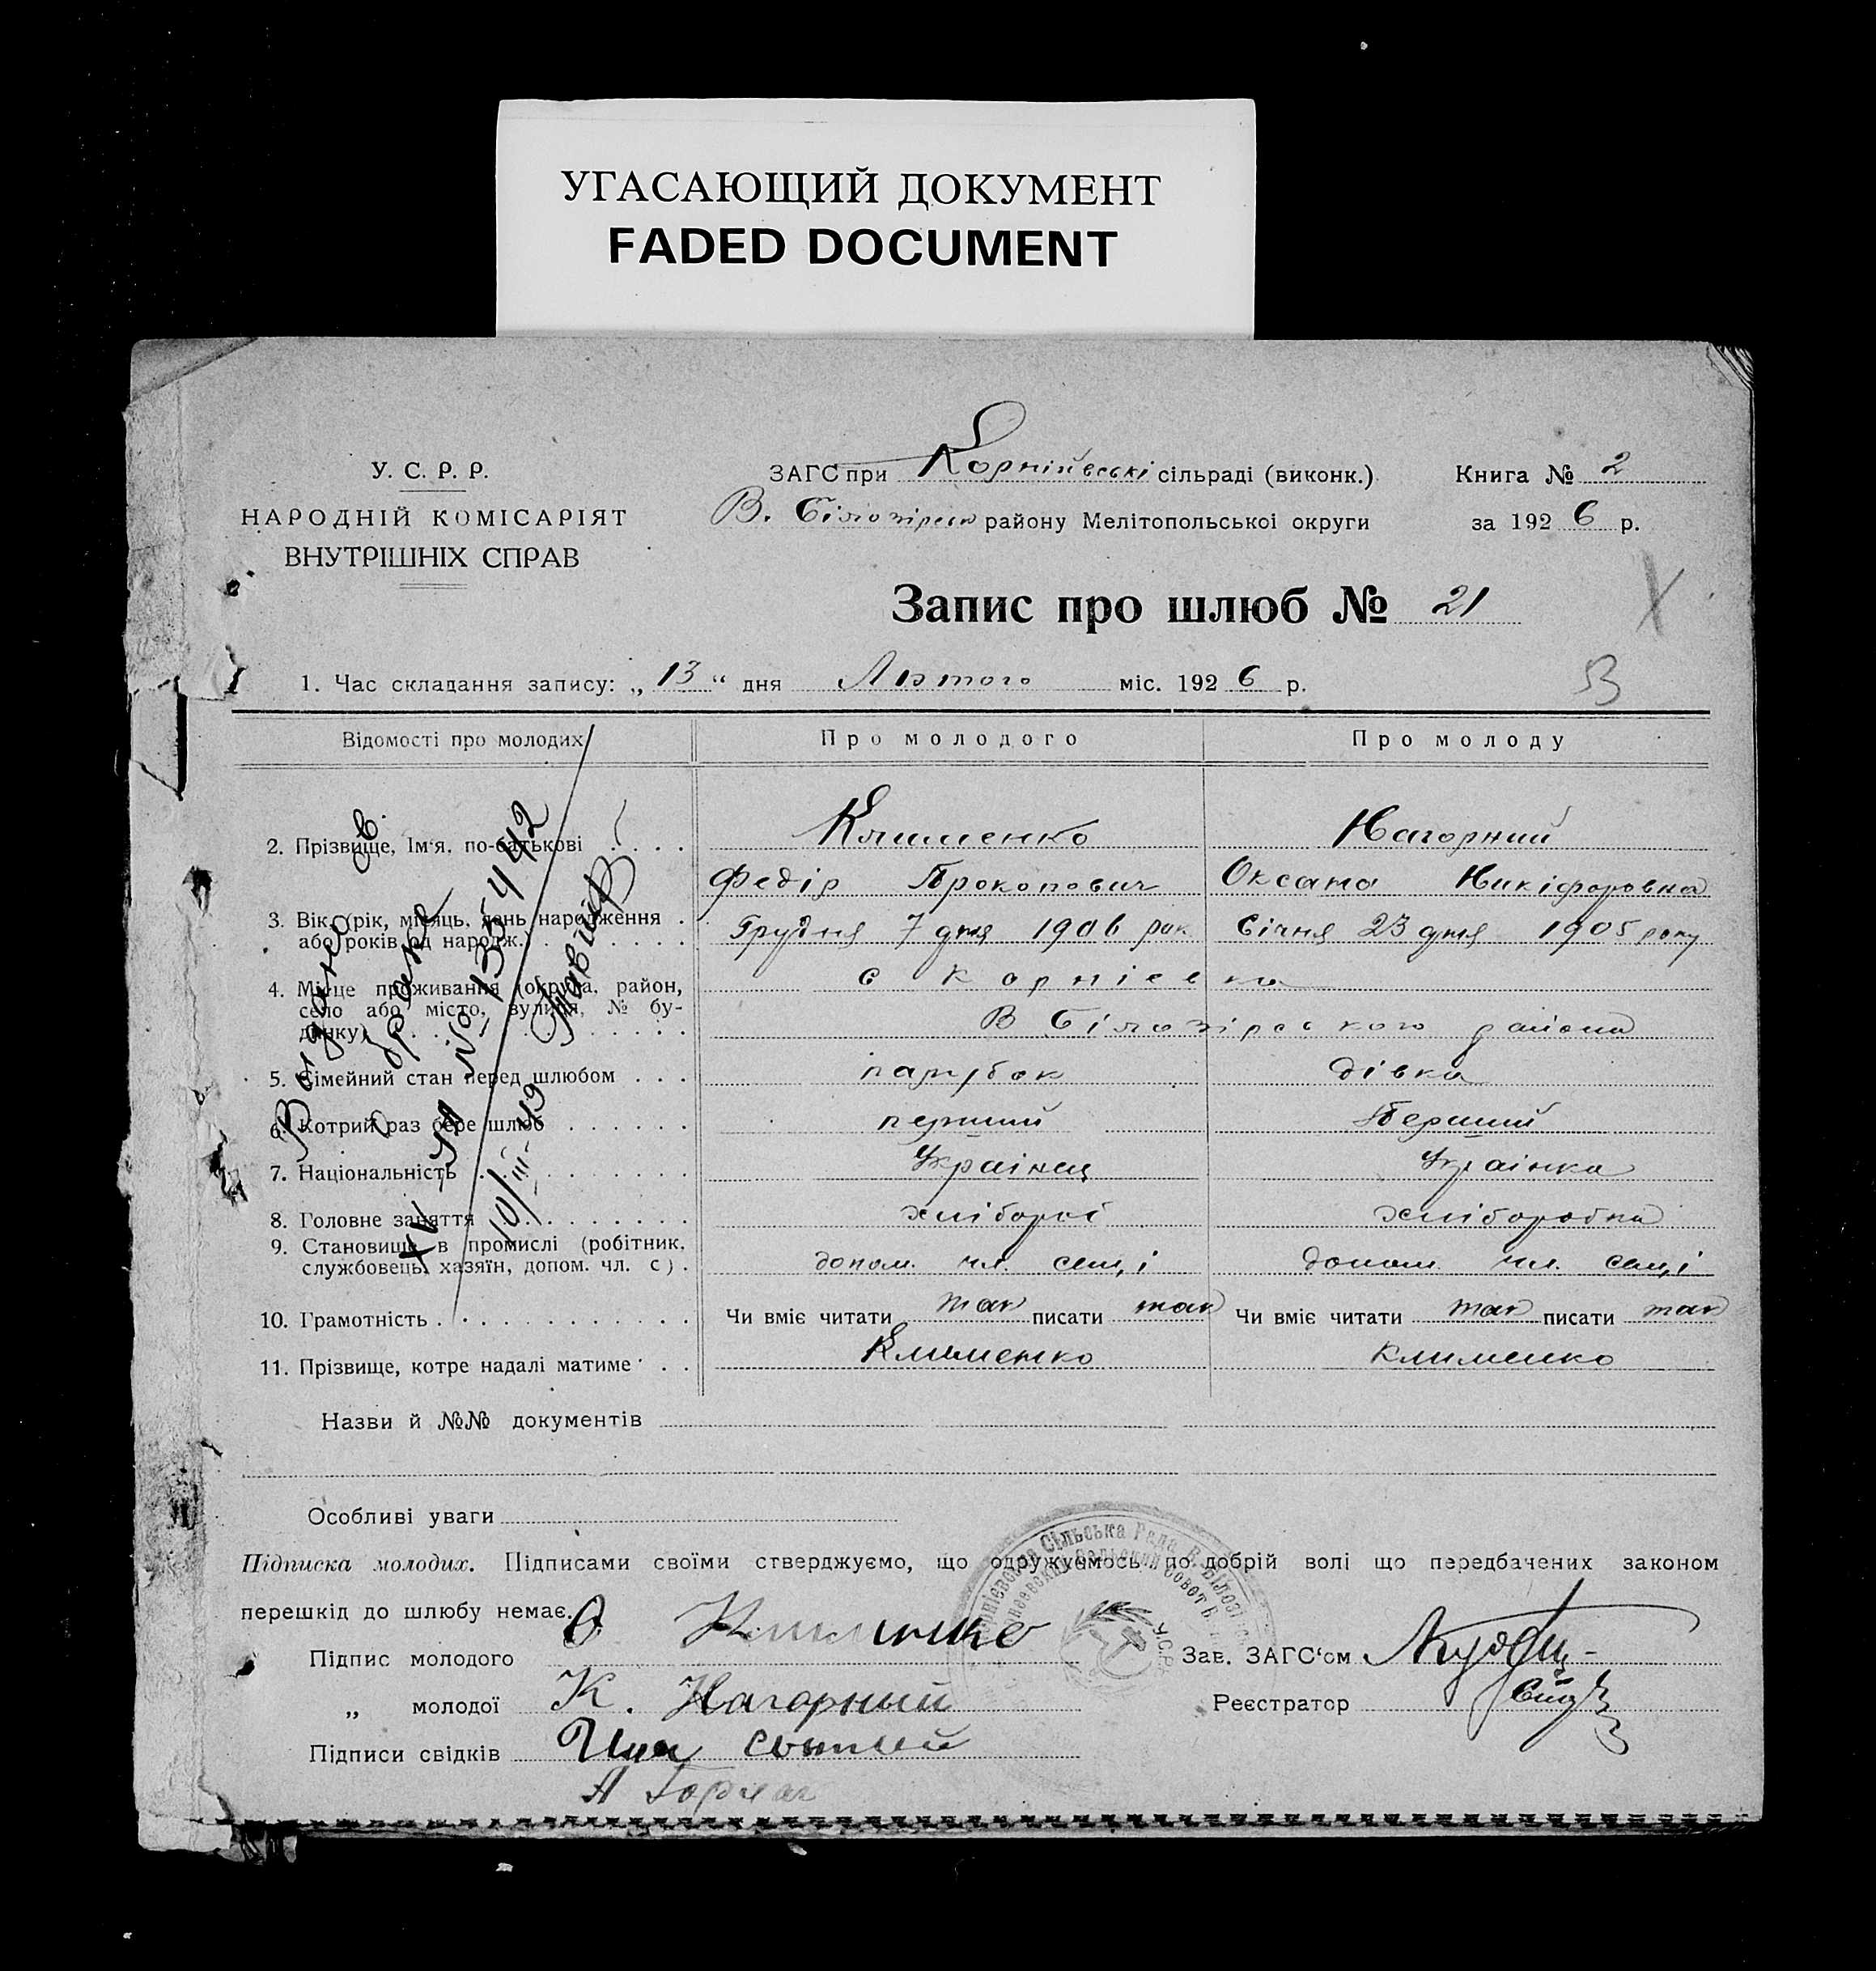 УГАСАЮЩИЙ ДОКУМЕНТ
FADED DOCUMENT
У. С. Р. Р.
НАРОДНІЙ КОМІСАРІЯТ
ВНУТРІШНІХ СПРАВ
ЗАГС при Корнійвські сільраді (виконк.)
В. Білозірськ району Мелітопольської округи
Книга № 2
за 1926 р.
Запис про шлюб № 21
1. Час складання запису: „13“ дня Лютого міс. 1926 р.
Відомості про молодих Про молодого Про молоду
2. Прізвище, Ім'я, по-батькові . . . . Клименко Нагорний
Федір Прокопович Оксана Никіфоровна
3. Вік (рік, місяць, день народження . Грудня 7 дня 1906 рок Січня 23 дня 1905 року
або років од народж.) . . . . . . . .
4. Місце проживання (округа, район, с Корніевка
село або місто, вулиця, № бу-
динку) . . . . . . . . В Білозірського района
5. Сімейний стан перед шлюбом . . . парубок дівка
6. Котрий раз бере шлюб . . . . . . перший Перший
7. Національність . . . . . . . . Українец Українка
8. Головне заняття . . . . . . . . хліборб хлібороб­ка
9. Становище в промислі (робітник,
службовець, хазяїн, допом. чл. с). допом. чл. семʼі допом. чл. семʼі
10. Грамотність . . . . . . . . . . . Чи вміє читати так писати так Чи вміє читати так писати так
11. Прізвище, котре надалі матиме . . Клименко Клименко
Видано св.
о браке
№ 135442
10/III-49
Назви й №№ документів
Особливі уваги
Підписка молодих. Підписами своїми стверджуємо, що одружуємось по добрій волі що передбачених законом
перешкід до шлюбу немає.
Підпис молодого Клименко
Зав. ЗАГС‘ом
„ молодої К. Нагорный
Реєстратор
Підписи свідків
Сільська Рада
У.С.Р.Р.